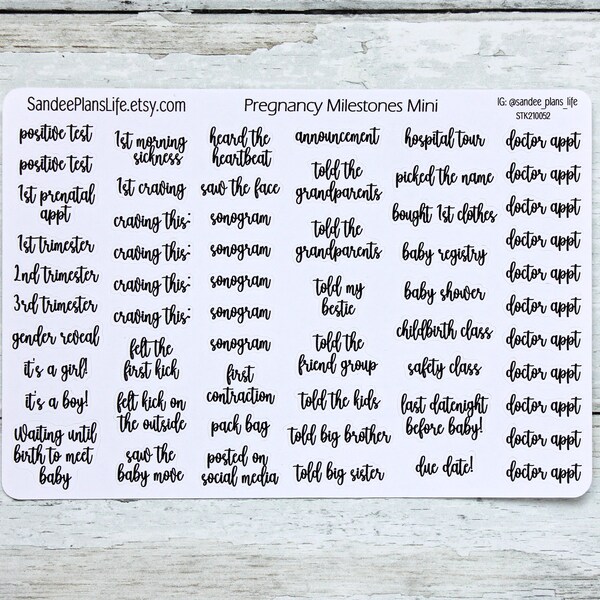 SandeePlansLife.etsy.com
Pregnancy Milestones Mini
IG: @sandee_plans_life
STK210052
positive test
positive test
1st prenatal
appt
1st trimester
2nd trimester
3rd trimester
gender reveal
it's a girl!
it's a boy!
Waiting until
birth to meet
baby
1st morning
sickness
1st craving
craving this:
craving this:
craving this:
craving this:
felt the
first kick
felt kick on
the outside
saw the
baby move
heard the
heartbeat
saw the face
sonogram
sonogram
sonogram
sonogram
sonogram
first
contraction
pack bag
posted on
social media
announcement
told the
grandparents
told the
grandparents
told my
bestie
told the
friend group
told the kids
told big brother
told big sister
hospital tour
picked the name
bought 1st clothes
baby registry
baby shower
childbirth class
safety class
last datenight
before baby!
due date!
doctor appt
doctor appt
doctor appt
doctor appt
doctor appt
doctor appt
doctor appt
doctor appt
doctor appt
doctor appt
doctor appt